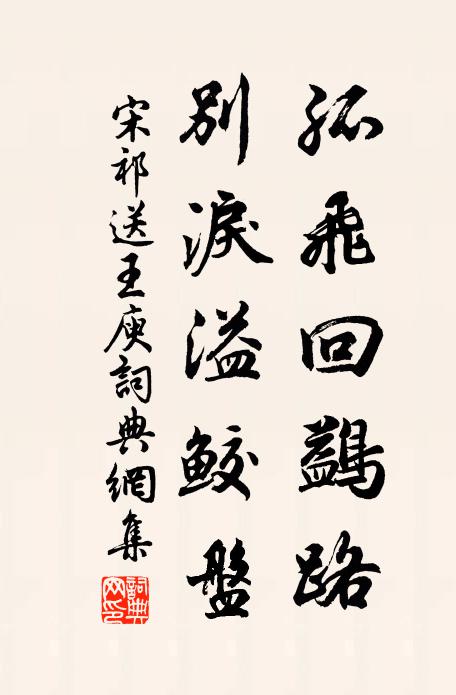 孤飛回鷁路
別淚溢鮫盤
宋祁送王庾詞典網集
詞典網印